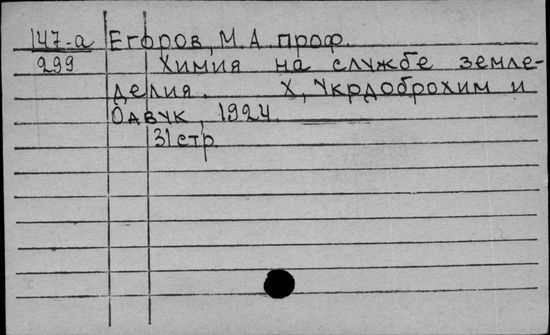 147-а Егоров, М.А проф.
299 Химия на службе земле-
делия. Х, Укрдоброхим и
Одвук, 1924.
31 стр.